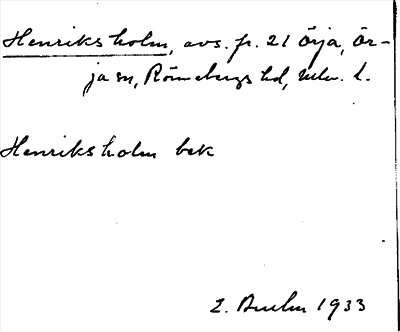 Henriksholm, avs. fr. 21 Örja, Ör-
ja sn, Rönnebergs hd, Mlm. l.
Henriksholm bek
1933